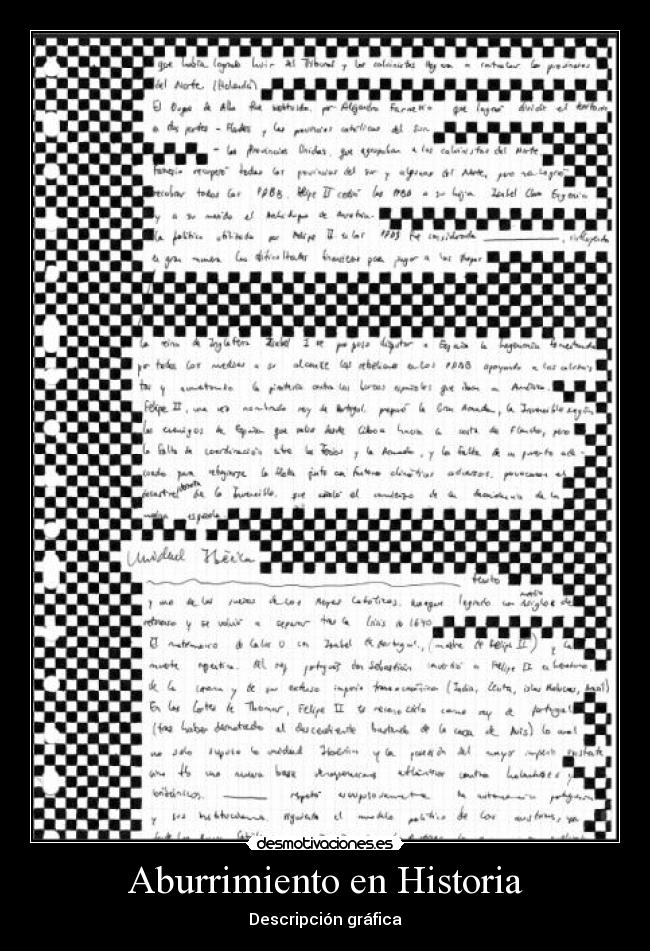 que había logrado huir del Tribunal y los calvinistas llegan a controlar las provincias
del Norte (Holanda)
El Duque de Alba fue sustituido por Alejandro Farnesio que logró dividir el territorio
a dos partes - Flandes y las provincias católicas del Sur
- Las Provincias Unidas, que agrupaban a los calvinistas del Norte.
Farnesio recuperó todas las provincias del sur y algunas del Norte, pero no logró
recobrar todos los PPBB. Felipe II cedió los PPBB a su hija Isabel Clara Eugenia
y a su marido el Archiduque de Austria.
La política utilizada por Felipe II en los PPBB fue considerada
en gran manera las dificultades financieras para pagar a las tropas
La reina de Inglaterra Isabel I se propuso disputar a España la hegemonía fomentando
por todos los medios a su alcance las rebeliones en los PPBB apoyando a los calvinis
tas y aumentando la piratería contra los barcos españoles que iban a América.
Felipe II, una vez nombrado rey de Portugal, preparó la Gran Armada, la Invencible según
los enemigos de España que salió desde Lisboa hacia la costa de Flandes, pero
la falta de coordinación entre los Tercios y la Armada, y la falta de un puerto ade-
cuado para refugiarse la flota junto con factores climáticos adversos, provocaron el
desastre de la Invencible, que señaló el comienzo de la decadencia de la
española
Unidad Ibérica
texto
y uno de los sueños de los Reyes Católicos. Aunque logrado con medio siglo de
retraso y se volvió a separar tras la Crisis de 1640
El matrimonio de Carlos V con Isabel de Portugal, (madre de Felipe II) y la
muerte repentina del rey portugués don Sebastián convirtió a Felipe II en heredero
de la corona y de su extenso imperio transoceánico (India, Ceuta, islas Molucas, Brasil)
En las Cortes de Thomar, Felipe II es reconocido como rey de Portugal
(tras haber derrotado al descendiente bastardo de la casa de Avis) lo cual
no solo supuso la unidad Ibérica y la posesión del mayor imperio existente
sino tb una nueva base de operaciones atlánticas contra holandeses y
británicos. respetó escrupulosamente la autonomía portuguesa
y sus instituciones, siguiendo el modelo político de los austrias, ya
desmotivaciones.es
Aburrimiento en Historia
Descripción gráfica